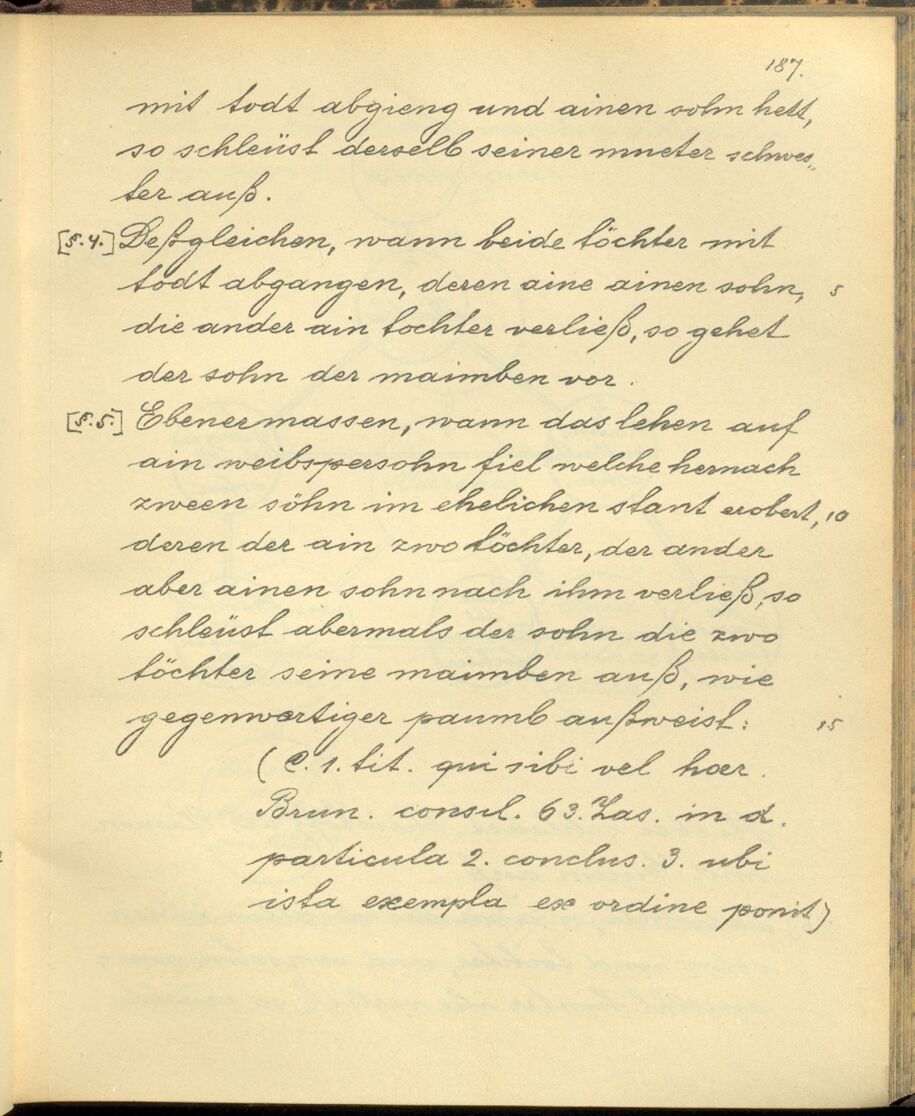 187.
mit todt abgieng und ainen sohn hett,
so schleüst derselb seiner mueter schwes„
ter auß.
[§. 4.] Deßgleichen, wann beide töchter mit
todt abgangen, deren aine ainen sohn, 5
die ander ain tochter verließ, so gehet
der sohn der maimben vor.
[§. 5.] Ebenermassen, wann das lehen auf
ain weibspersohn fiel welche hernach
zween söhn im ehelichen stant erobert, 10
deren der ain zwo töchter, der ander
aber ainen sohn nach ihm verließ, so
schleüst abermals der sohn die zwo
töchter seine maimben auß, wie
gegenwertiger paumb außweist: 15
(C. 1. tit. qui sibi vel haer.
Brun. consil. 63. Zas. in d.
particula 2. conclus. 3. ubi
ista exempla ex ordine ponit)